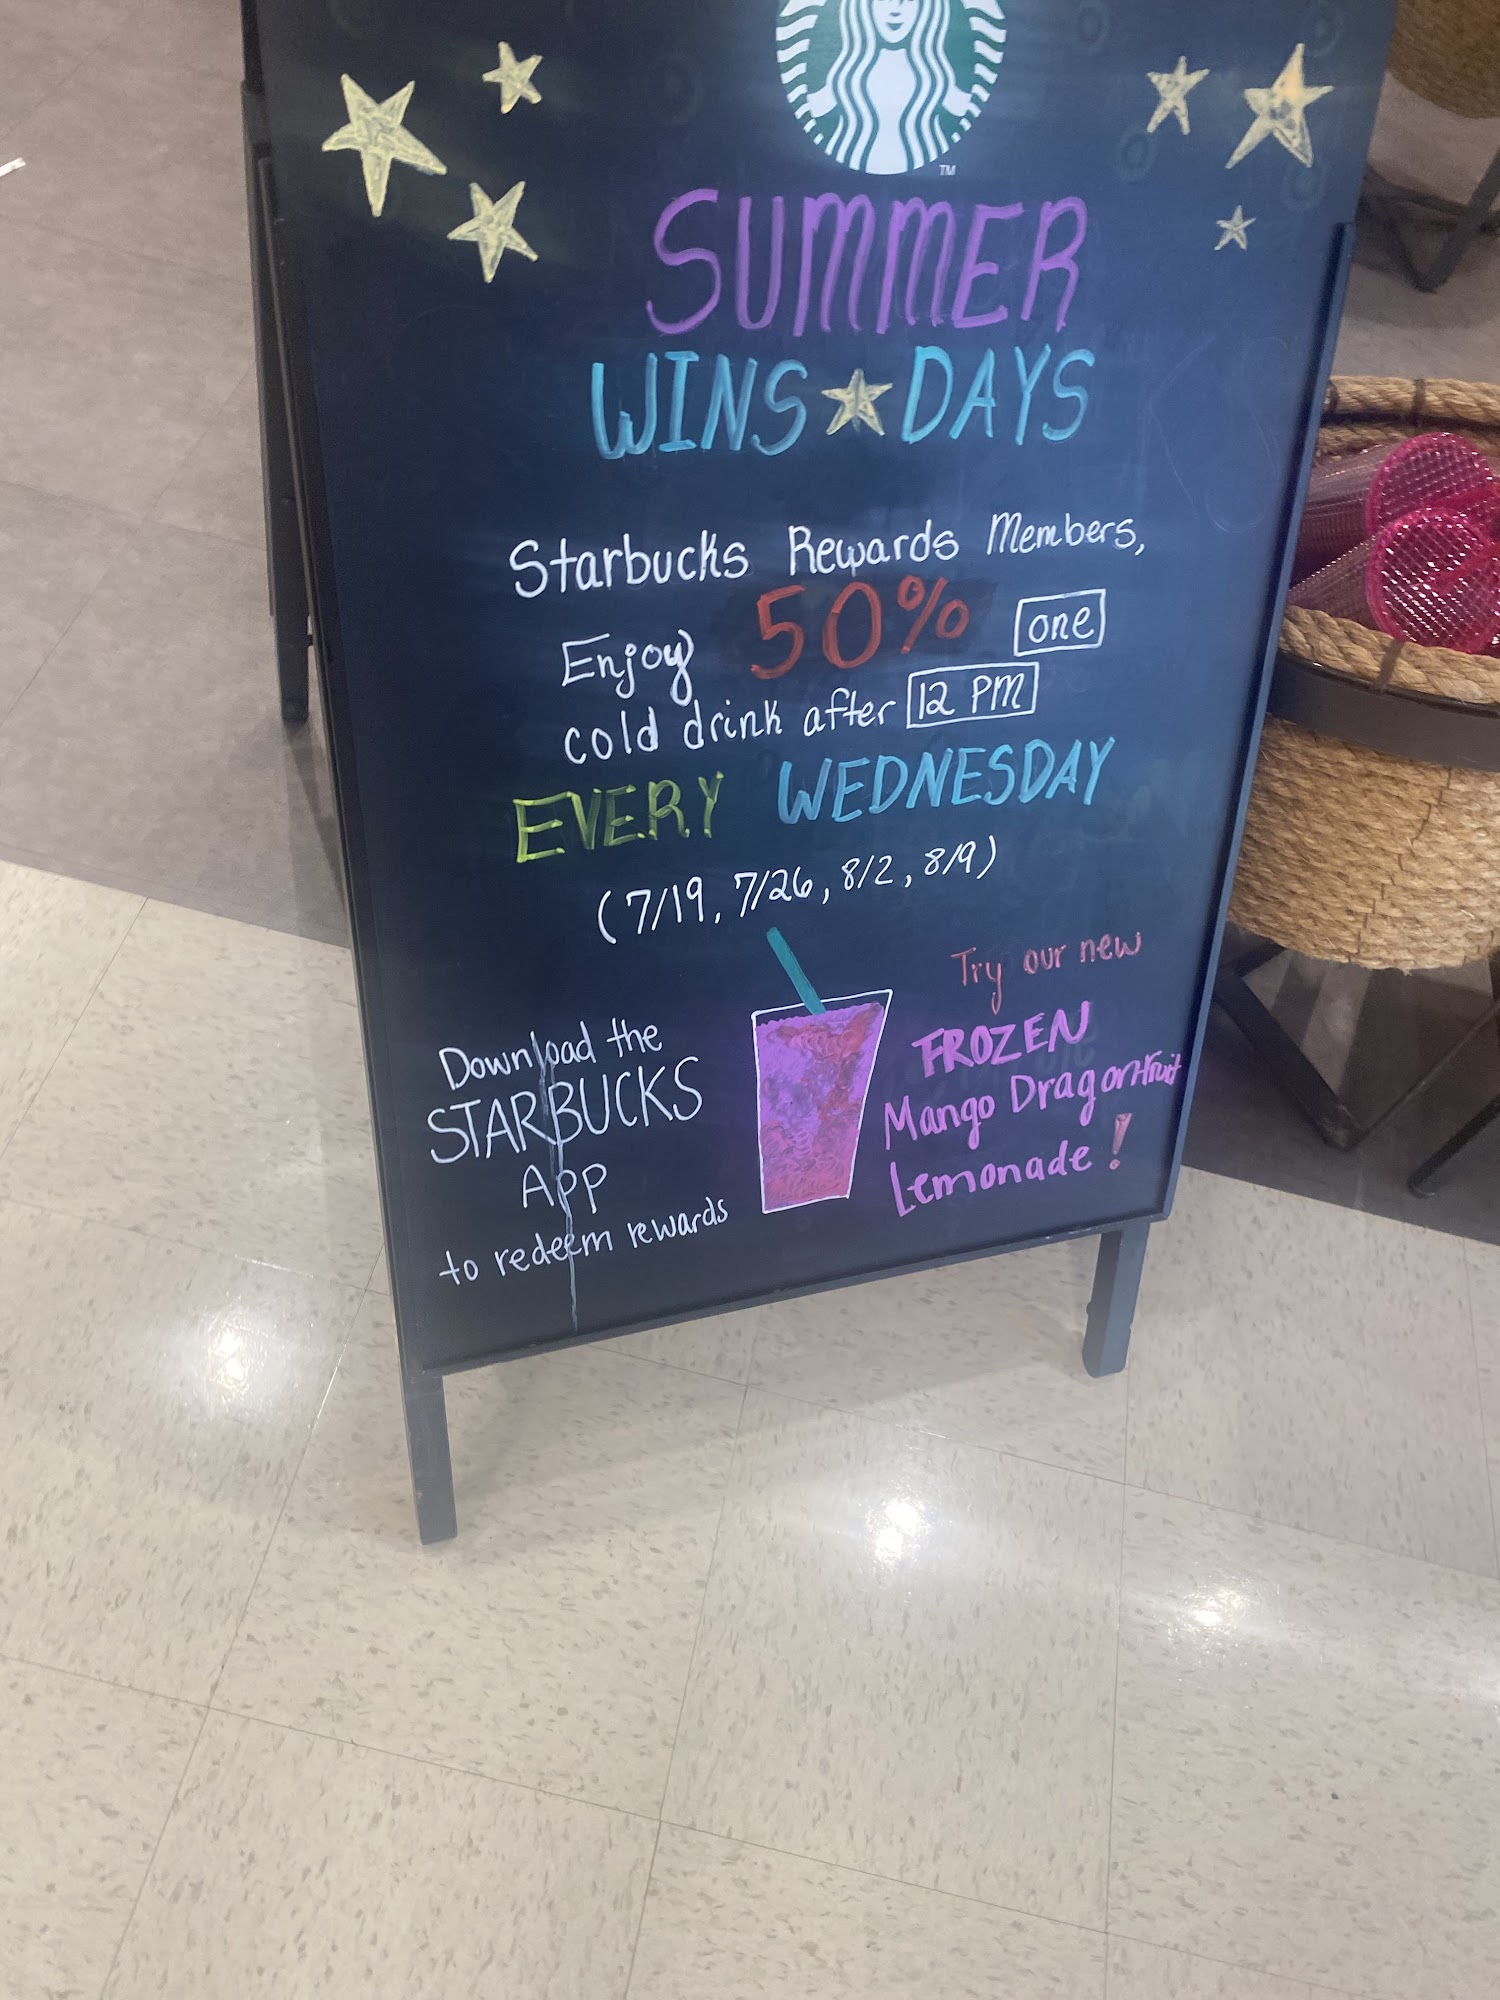 TM
SUMMER
WINS DAYS
Starbucks Rewards Members,
Enjoy 50% one
cold drink after 12 PM
EVERY WEDNESDAY
(7/19, 7/26, 8/2, 8/9)
Download the
STARBUCKS
App
to redeem rewards
Try our new
FROZEN
Mango Dragonfruit
Lemonade!